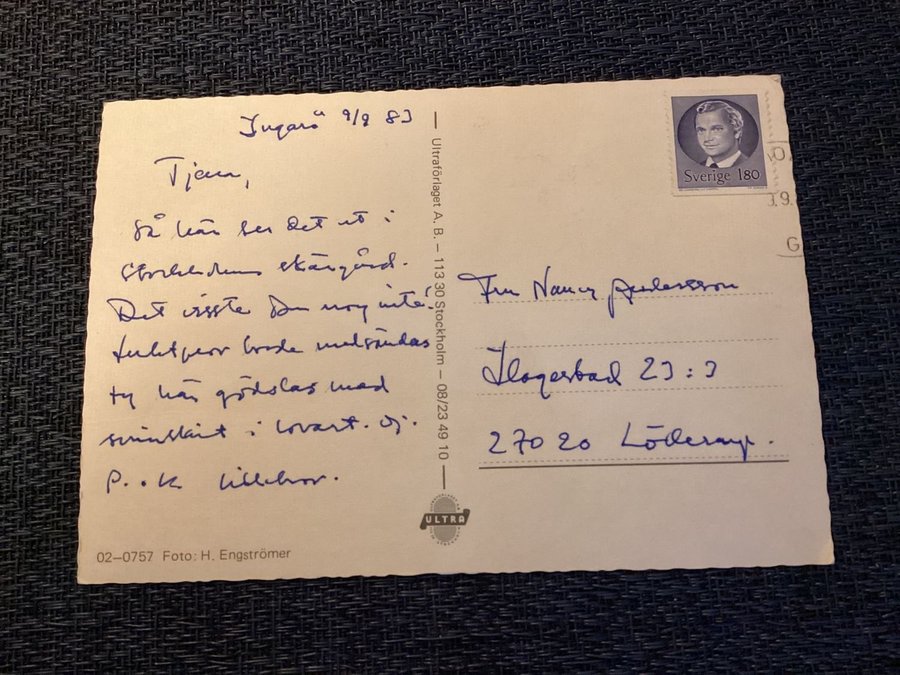 Ingarö 9/9 83
Tjena,
Så här ser det ut i
Stockholms skärgård.
Det visste Du nog inte!
Luktprov borde medsändas
ty här gödslas med
svinskit i lovart. Oj.
P. o K Lillebror.
02–0757 Foto: H. Engströmer
Ultraförlaget A. B. – 113 30 Stockholm – 08/23 49 10
ULTRA
Sverige 180
Fru Nancy
23:3
270 20 Löderup.